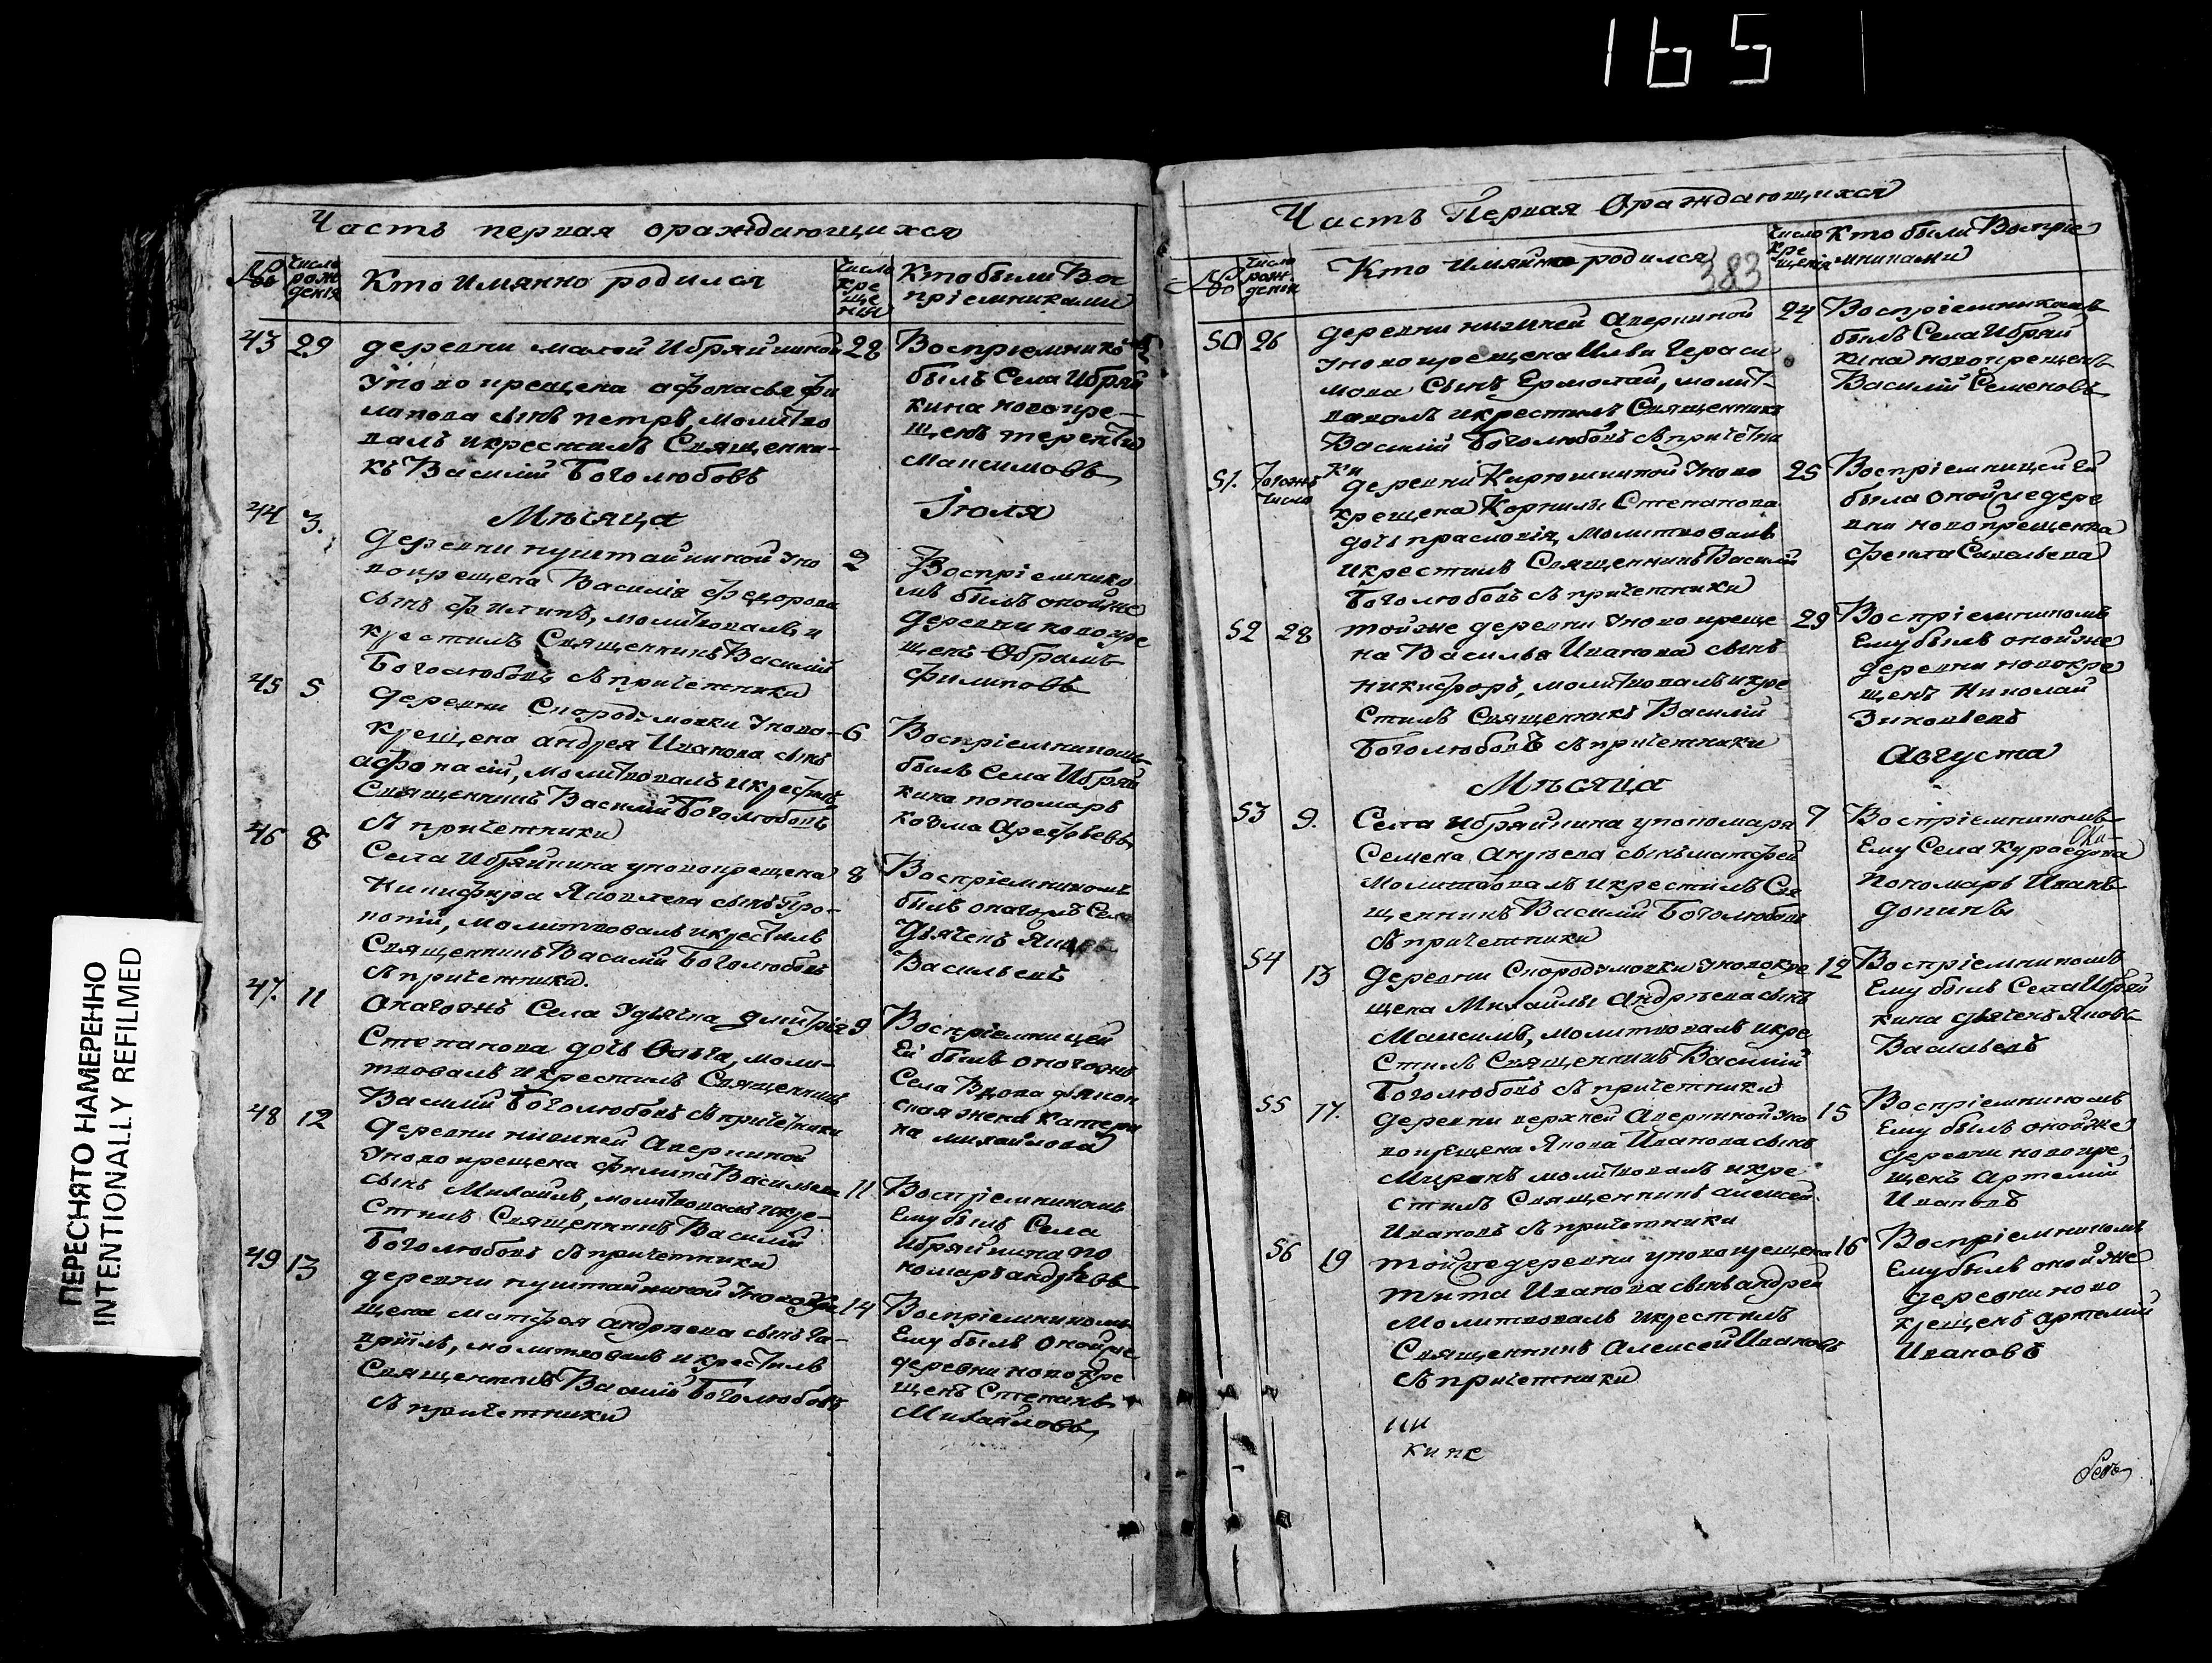 165
ПЕРЕСНЯТО НАМЕРЕННО
INTENTIONALLY REFILMED
Часть первая ораждающихся
№
Число рож дения
Кто имянно родился
Число кре ще ния
Кто были Вос
пріемниками
43 29
деревни малой Ибряйкиной 28
у новокрещена афонасье фи
липова сынъ петръ, молитво
валъ икрестилъ Священни-
къ Василий Боголюбовъ
Воспріемнико
былъ Села Ибряй
кина новокре-
щенъ терентий
Максимовъ
Мѣсяца Іюля
44 3.
деревни пуштайкиной уно 2
вокрещена Василія федорова
сынъ филипъ, молитвовалъ и
крестилъ Священникъ Василий
Боголюбовъ съ причетники
Воспріемнико
мъ былъ оной же
деревни новокре
щенъ Обрамъ
филиповъ
45 5
деревни Скородумовки уново- 6
крещена андрея Иванова сынъ
афонасій, молитвовалъ икрестилъ
Священникъ Василий Боголюбовъ
съ причетники
Воспріемникомъ
былъ Села Ибряй
кина пономарь
козма Арефьевъ
46 8
Села Ибряйкина уновокрещена 8
Никифира Яковлева сынъ Про-
копій, молитвовалъ икрестилъ
Священникъ Василий Боголюбовъ
съ причетники.
Воспріемникомъ
былъ оногожъ Села
дьячекъ Яковъ
Васильевъ
47. 11
Оногожъ Села Удьячка дмитрія 9
Степанова дочь моли-
твовалъ икрестилъ Священникъ
Василий Боголюбовъ съ причетники
Воспріемницей
Ей былъ оногожъ
Села Вдова дьякон
ская жена катери
на михайлова
48 12
деревни нижней Аверкиной
уновокрещена филипа Васильева 11
сынъ Михаилъ, молитвовалъ икре-
стилъ Священникъ Василий
Боголюбовъ съ причетники
Воспріемникомъ
Ему былъ Села
Ибряйкина по
номарь андреевъ
49 13
деревни пуштайкиной уновокре 14
щена матфея андреева сынъ га-
врилъ, молитвовалъ икрестилъ
Священникъ Василий Боголюбовъ
съ причетники
Воспріемникомъ
Ему былъ оной же
деревни новокре
щенъ Степанъ
Михайловъ
Часть Первая Ораждающихся
№
Число рож. дения
Кто имянно родился
383
Число кре щения
Кто были Воспріе
мниками
50 26
деревни нижней Аверкиной 24
уновокрещена Ильи Гераси
мова Сынъ Ермолай, молит-
вовалъ икрестилъ Священникъ
Василий Боголюбовъ съ причетни
ки
Воспріемникомъ
былъ Села Ибряй
кина новокрещенъ
Василий Семеновъ
51. Тогожъ число
деревни Кирюшкиной уново 25
крещена Корнилы Степанова
дочь прасковія, молитвовалъ
икрестилъ Священникъ Василий
Боголюбовъ съ причетники
Воспріемницей Ей
была оной же дере
вни новокрещенка
фекла Савельева
52 28
той же деревни уновокреще 29
на Василья Иванова сынъ
никифоръ, молитвовалъ икре
стилъ Священникъ Василий
Боголюбовъ съ причетники
Воспріемникомъ
Ему былъ оной же
деревни новокре
щенъ Николай
Зиновьевъ
Мѣсяца Августа
53 9.
Села ибряйкина упономаря 7
Семена Андреева сынъ матфей
молитвовалъ икрестилъ Свя
щенникъ Василий Боголюбовъ
съ причетники
Воспріемникомъ
Ему Села Кураедова
Пономарь Иванъ
54 13
деревни Скородумовки уновокре 12
щена Михаилы Андреева сынъ
Максимъ, молитвовалъ икре
стилъ Священникъ Василий
Боголюбовъ съ причетники
Воспріемникомъ
Ему былъ Села Ибряй
кина дьячекъ Яковъ
Васильевъ
55 17.
деревни верхней Аверкиной уно 15
вокрещена Якова Иванова сынъ
Миронъ молитвовалъ икре
стилъ Священникъ алексей
Ивановъ съ причетники
Воспріемникомъ
Ему былъ оной же
деревни новокре
щенъ Артемий
Ивановъ
56 19
той же деревни уновокрещена 16
тита Иванова сынъ андрей
Молитвовалъ икрестилъ
Священникъ Алексей Ивановъ
съ причетники
Воспріемникомъ
Ему былъ оной же
деревни ново
крещенъ артемий
Ивановъ